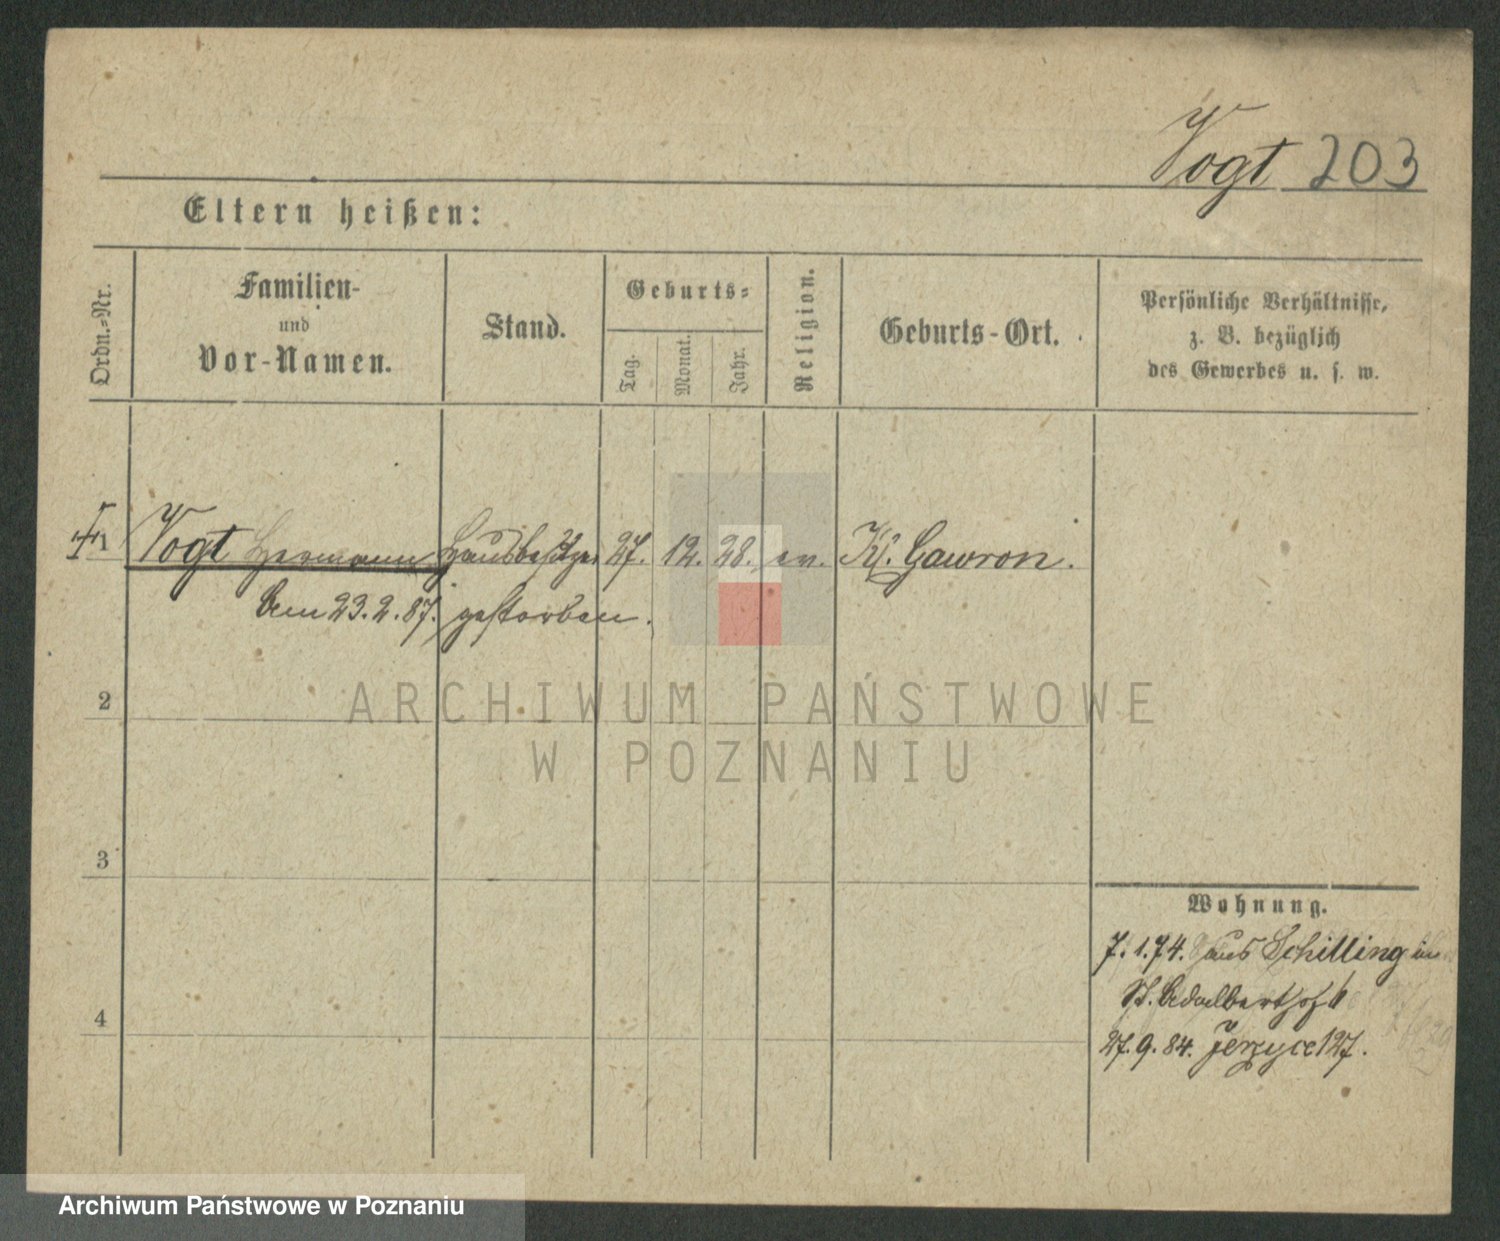 Vogt 203
Eltern heißen:
Ordn.-Nr.
Familien-
und
Vor-Namen.
Stand.
Geburts-
Tag.
Monat.
Jahr.
Religion.
Geburts-Ort.
Persönliche Verhältnisse,
z. B. bezüglich
des Gewerbes u. s. w.
1 Vogt Hermann Hausbesitzer 27. 12. 28. ev. Kl. Gawron.
Am 23.2.87. gestorben.
2
3
4
Wohnung.
7.1.74. aus Schilling in
St. Adalberthof 6
27.9.84. Jerzyce 127.
ARCHIWUM PAŃSTWOWE
W POZNANIU
Archiwum Państwowe w Poznaniu